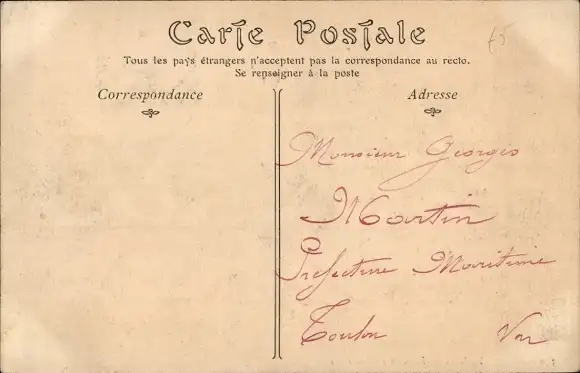 Carte Postale
Tous les pays étrangers n'acceptent pas la correspondance au recto.
Se renseigner à la poste
Correspondance
Adresse
Monsieur Georges
Martin
Préfecture Maritime
Toulon Var